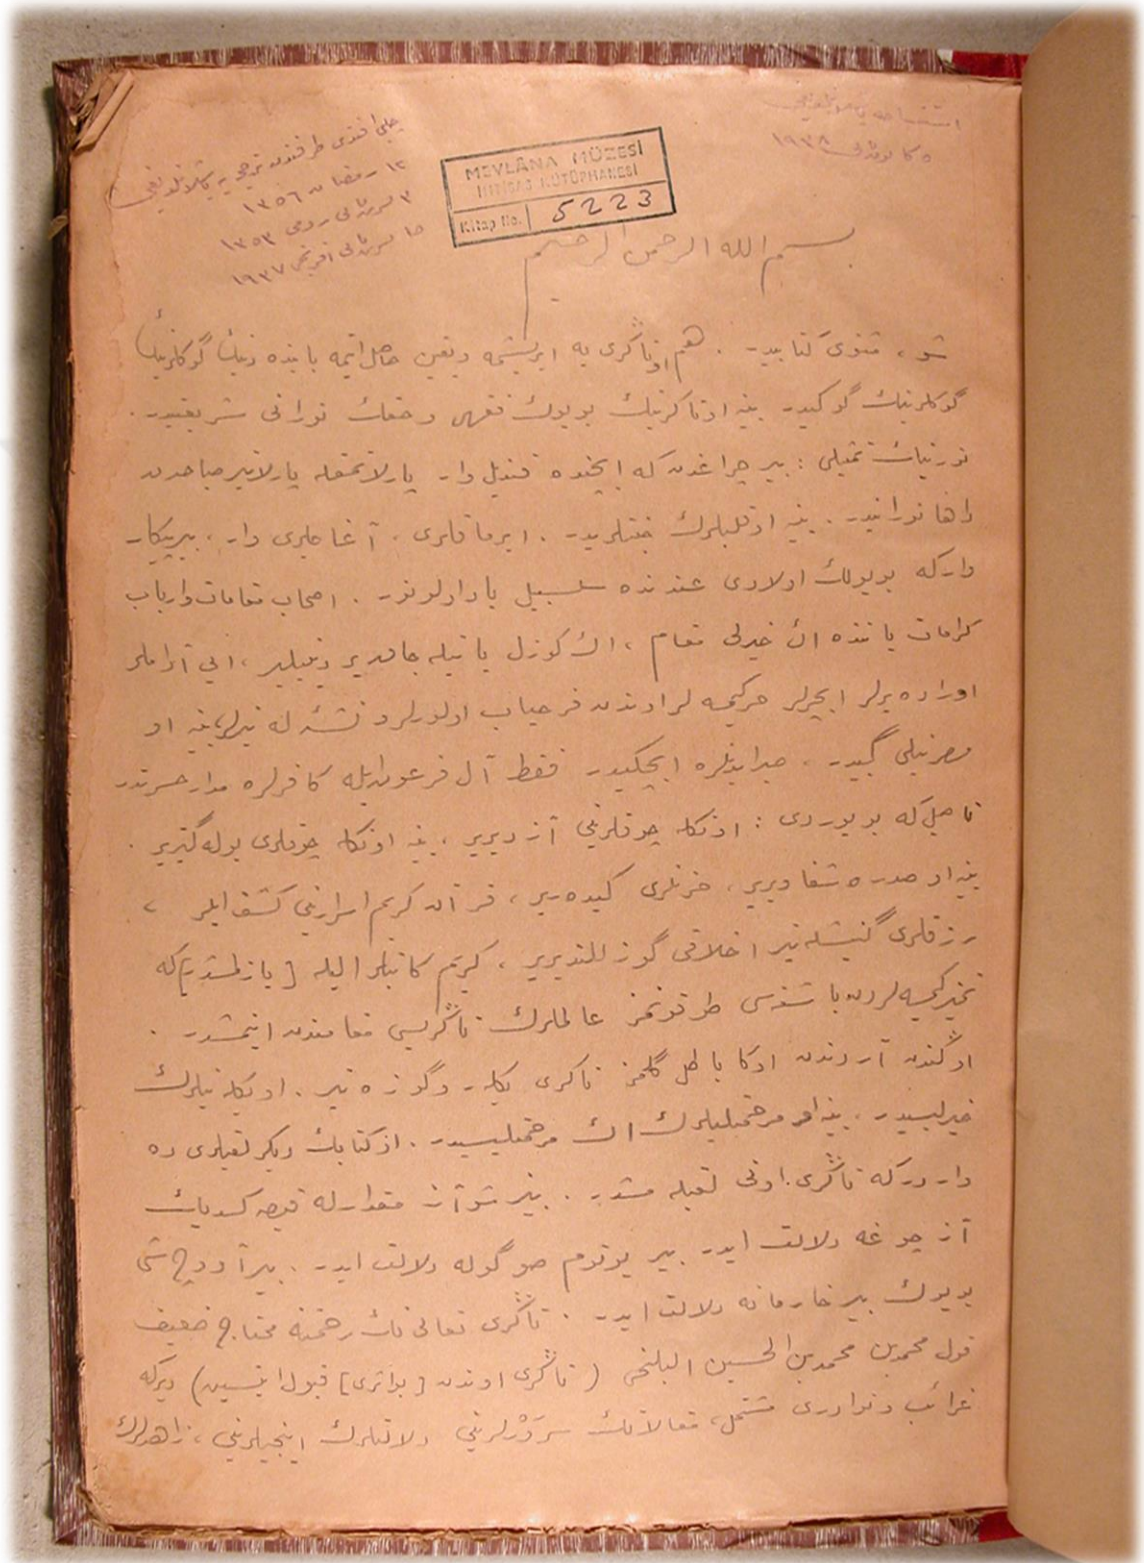 استنساخه باشلانديغى
٥ كانون ثانى ١٩٣٨
چلبى افندى طرفندن ترجمه يه باشلانلديغى
١٢ رمضان ١٣٥٦
٣ تشرين ثانى رومى ١٣٥٣
١٥ تشرين ثانى افرنجى ١٩٣٧
MEVLÂNA MÜZESİ
İHTİSAS KÜTÜPHANESİ
Kitap No. 5223
بسم الله الرحمن الرحيم
شو، مثنوى كتابيدر. هم او تاڭرى يه ايريشمه ويقين حاصل ايتمه بابنده دينڭ كوكلرينڭ
كوكلرينڭ كوكيدر. ينه او تاڭرينڭ بويوك فقهى و حقڭ نورانى شريعتيدر.
نورينڭ تمثيلى: بير چراغدن كه ايچنده قنديل وار پارلاتمقله پارلاتير صباحدن
داها نورانيدر. ينه او قلبلرڭ جنتلريدر. ايرماقلرى، آغاجلرى وار، بير پيڭار
واركه بو يولڭ اولادى عندنده سلسبيل ياد اولونور. اصحاب مقامات وارباب
كرامات ياننده اڭ خيرلى مقام، اڭ گوزل ياتيله جاق ير دينيلير، اى آدملر
اوراده يرلر ايچرلر حر كيمسه لر اوندن فرحياب اولورلر ونشئه لنيرلر، ينه او
مصر نيلى گبيدر. صبر ايدنلره ايچكيدر. فقط آل فرعون ايله كافرلره مدار حسرتدر
ناصل كه بويوردى: اونڭله چوقلرينى آزديرير، ينه اونڭله چوقلرى يوله گتيرير.
ينه او صدره شفا ويرير، حزنلرى گيده رير، قرآن كريم اسرارينى كشف ايلر،
رزقلرى گنيشله تير اخلاقى گوزللنديرير، كريم كاتبلر اليله [يازلمشدر] كه
تميز كيمسه لردن باشقه سى طوقونمز عالملرڭ تاڭريسى مقامندن اينمشدر.
اوڭندن آردندن اوڭا باطل گلمز تاڭرى بكلر و گوزه تير. او بكله ينلرڭ
خيرليسيدر. ينه او مرحمتليلرڭ اڭ مرحمتليسيدر. او كتابڭ ديگر لقبلرى ده
واردر كه تاڭرى اونى لقبله مشدر. بيز شو آز مقدارله قيصه كسديك
آز چوغه دلالت ايدر. بير يودوم صو گوله دلالت ايدر. بير آووچ شى
بويوك بير خارمانه دلالت ايدر. تاڭرى تعالى نڭ رحمتنه محتاج ضعيف
قول محمد بن محمد بن الحسين البلخى (تاڭرى اوندن [بو اثرى] قبول ايتسين) ديركه
غرائب ونوادرى مشتمل، مقالاتڭ سرورلرينى دلالتلرڭ اينجيلرينى، زاهدلرڭ